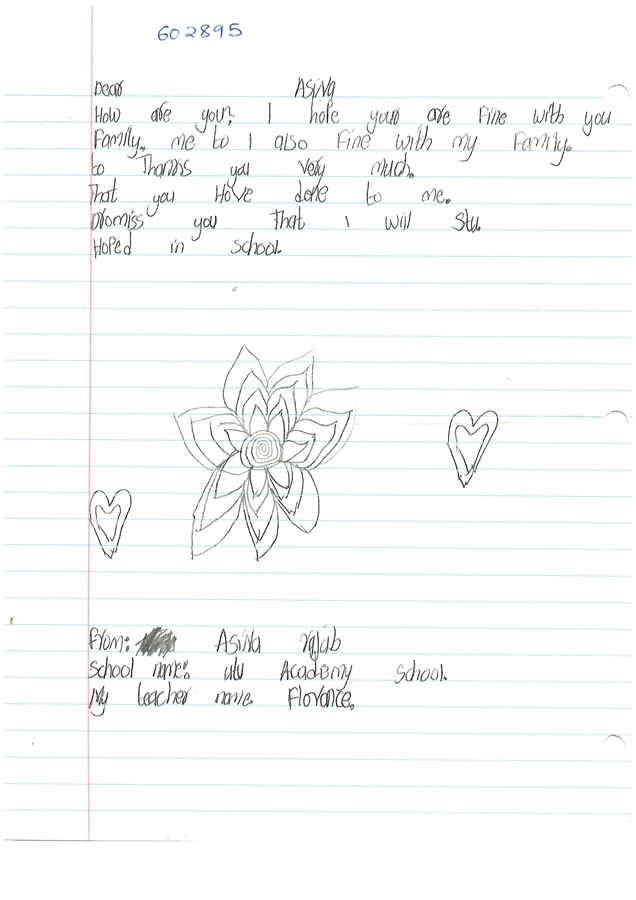 602895
Dear Asina
How are you? I hope your are Fine with you
Family. me to I also Fine with my Family.
to Thanks you very much.
That you Have done to me.
promiss you That i will stu.
Hoped in school.
From: Asina rajab
School name: ulu Academy School.
My teacher name. Florance.